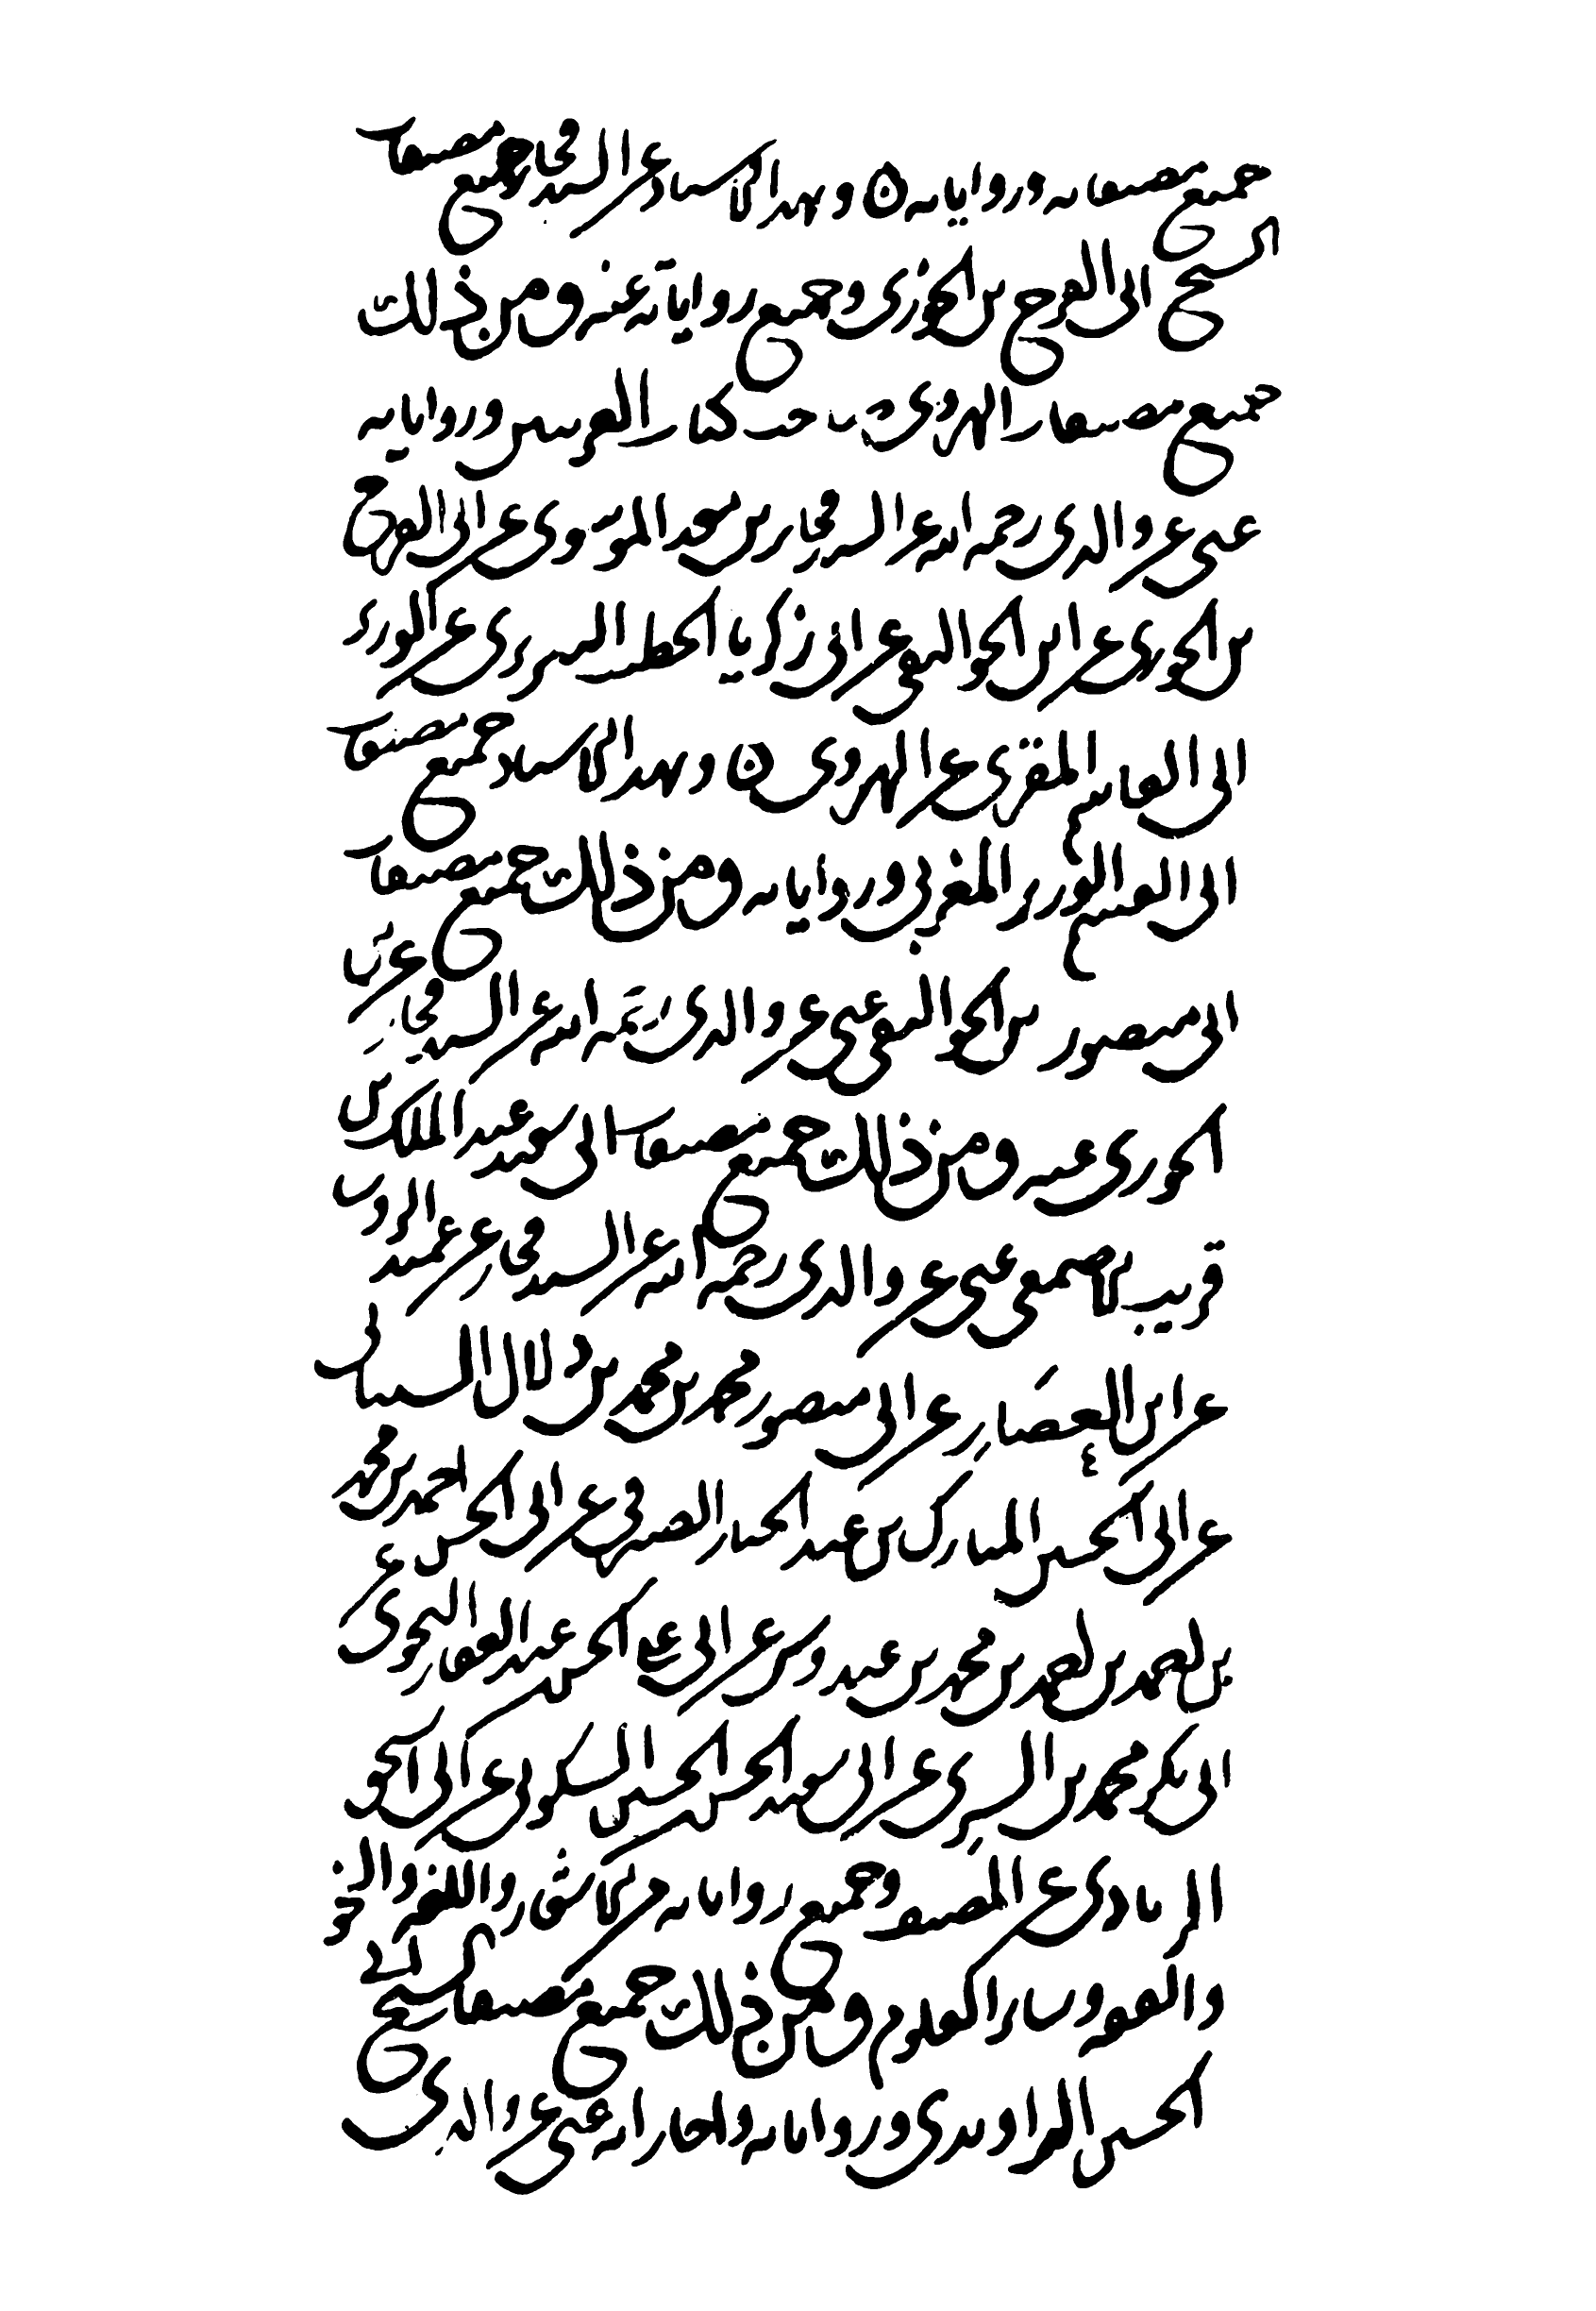 جميع مصنفاته ورواياته ۞ وبهذا الاسناد عن السيد فخار جميع مصنفات
الشيخ ابى الفرج بن الجوزى وجميع رواياته عنه ومن ذلك
جميع مصنفات الهروى صاحب كتاب الغريبين ورواياته
عنى عن والدى رحمه الله عن السيد فخار بن معد الموسوى عن ابى الفرج
بن الجوزى عن ابن الجواليقى عن ابى زكريا الخطيب التبريزى عن الوزير
ابى القاسم المغربى عن الهروى ۞ وبهذا الاسناد جميع مصنفات
ابى القاسم الوزير المغربى ورواياته ومن ذلك جميع مصنفات
ابى منصور بن الجواليقى عنى عن والدى رحمه الله عن السيد فخار عن بن
الجوزى عنه ومن ذلك جميع مصنفات ابى سعيد عبد الملك بن
قريب الاصمعى عنى عن والدى رحمه الله عن السيد فخار عن عميد الروسا
عن ابن العصار عن ابى منصور محمد بن محمد بن دلال الشيبانى
عن ابى الحسين المبارك بن عبد الجبار الصيرفى عن ابى الحسن احمد بن محمد
بن لصمد بن لصمد بن محمد بن عبدوس عن ابى على الحسن عبد الغفار النحوى عن
ابى بكر محمد بن السرى عن ابى سعيد الحسن الحسين السكرى عن ابى اسحق
الزيادى عن المصنف وجميع رواياته من الاشعار واللغه والنحو
والفقه وسائر العلوم ومن ذلك جميع مصنفات الشيخ
الحسين الراوندى ورواياته واجازاته عنى عن والدى